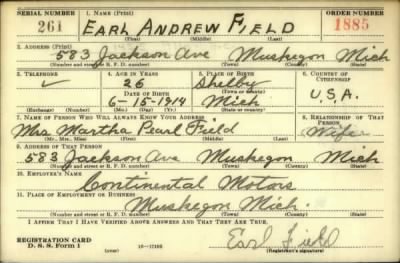 SERIAL NUMBER 1. NAME (Print) ORDER NUMBER
261 EARL ANDREW FIELD 1885
(First) (Middle) (Last)
2. ADDRESS (Print)
583 Jackson Ave Muskegon Mich
(Number and street or R. F. D. number) (Town) (County) (State)
3. TELEPHONE 4. AGE IN YEARS 5. PLACE OF BIRTH 6. COUNTRY OF CITIZENSHIP
✓ 26 Shelby
DATE OF BIRTH (Town or county)
6-15-1914 Mich U.S.A.
(Exchange) (Number) (Mo.) (Day) (Yr.) (State or country)
7. NAME OF PERSON WHO WILL ALWAYS KNOW YOUR ADDRESS 8. RELATIONSHIP OF THAT PERSON
Mrs Martha Pearl Field Wife
(Mr., Mrs., Miss) (First) (Middle) (Last)
9. ADDRESS OF THAT PERSON
583 Jackson Ave Muskegon Mich
(Number and street or R. F. D. number) (Town) (County) (State)
10. EMPLOYER'S NAME
Continental Motors
11. PLACE OF EMPLOYMENT OR BUSINESS
Muskegon Mich.
(Number and street or R. F. D. number) (Town) (County) (State)
I AFFIRM THAT I HAVE VERIFIED ABOVE ANSWERS AND THAT THEY ARE TRUE.
REGISTRATION CARD
D. S. S. Form 1 (over) 16-17105 Earl Field
(Registrant's signature)